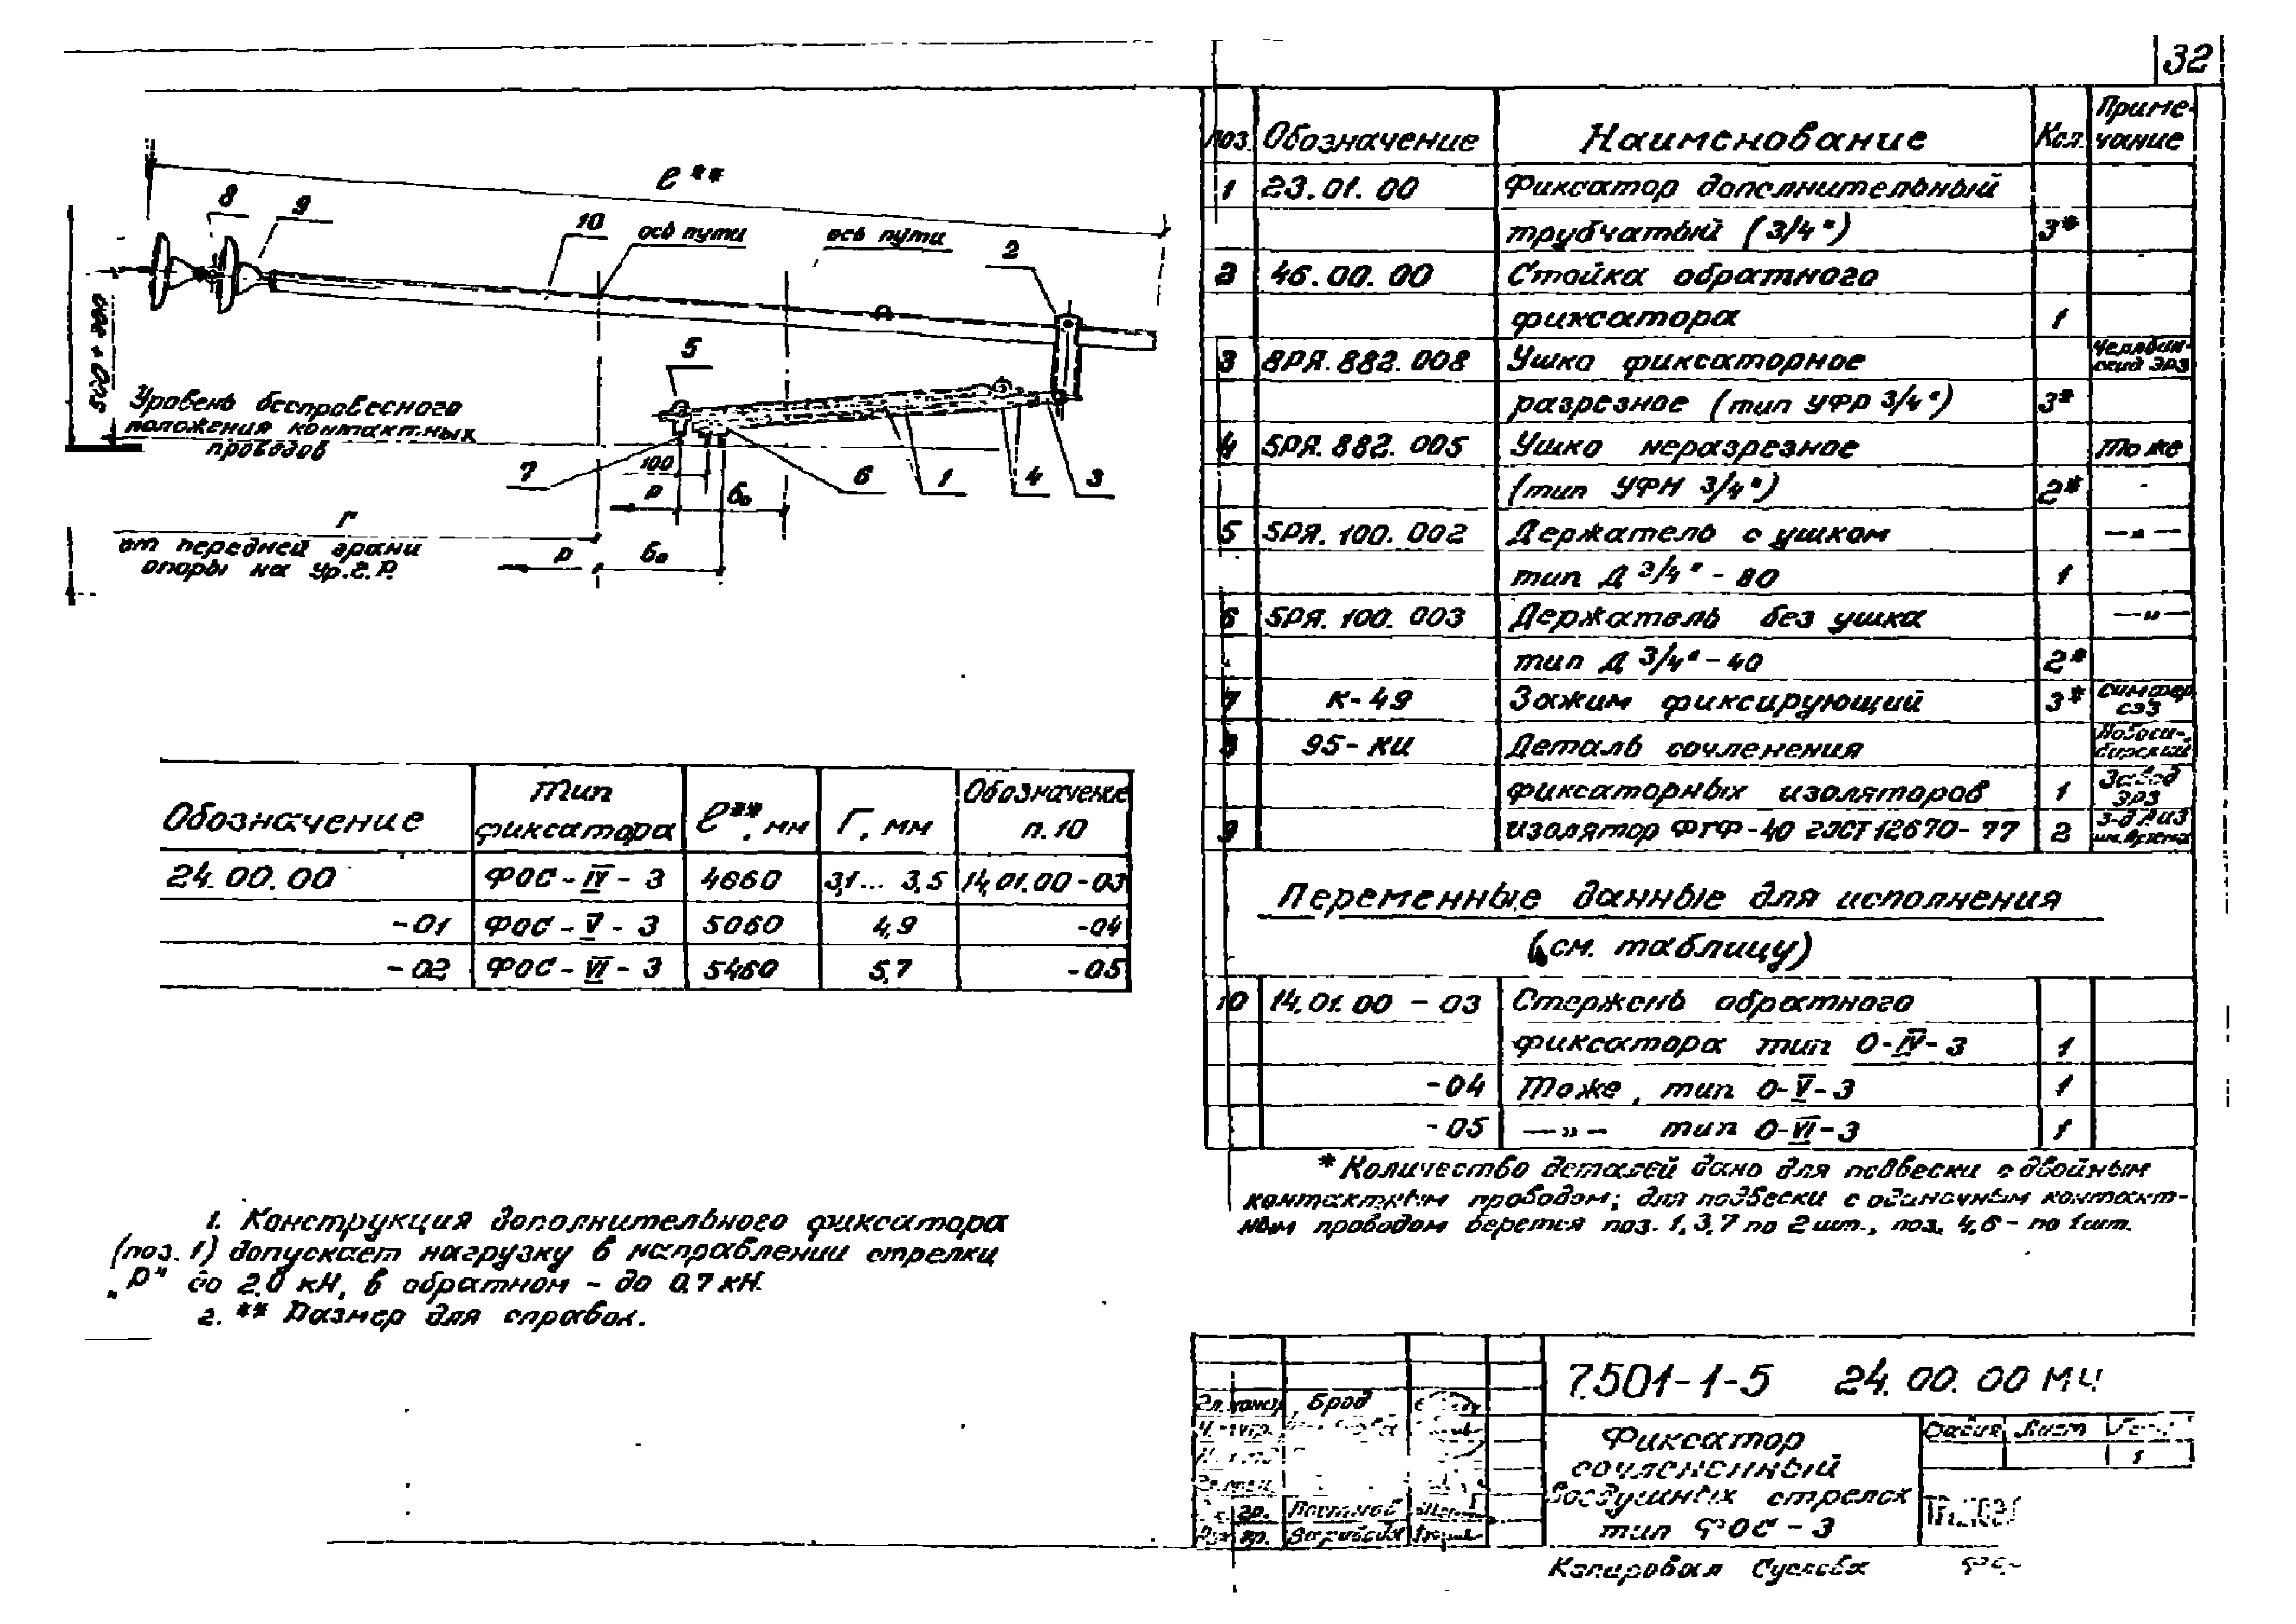 32
ℓ**
8
9
10
ось пути
ось пути
2
5
Уровень беспровесного
положения контактных
проводов
7
100
6
1
4
3
Р
бо
Г
от передней грани
опоры на Ур.Г.Р.
Р
бо
Обозначение | Тип фиксатора | ℓ**, мм | Г, мм | Обозначение п.10
24.00.00 | ФОС-IV-3 | 4660 | 3,1... 3,5 | 14.01.00-03
-01 | ФОС-V-3 | 5060 | 4,9 | -04
-02 | ФОС-VI-3 | 5460 | 5,7 | -05
1. Конструкция дополнительного фиксатора
(поз. 1) допускает нагрузку в направлении стрелки
„Р" до 2.0 кН, в обратном - до 0.7 кН.
2. ** Размер для справок.
Поз. | Обозначение | Наименование | Кол. | Примечание
1 | 23.01.00 | Фиксатор дополнительный
трубчатый (3/4") | 3*
2 | 46.00.00 | Стойка обратного
фиксатора | 1
3 | 8РЯ.882.008 | Ушко фиксаторное | Челябинский ЭРЗ
разрезное (тип УФР 3/4") | 3*
4 | 5РЯ.882.005 | Ушко неразрезное | То же
(тип УФН 3/4") | 2*
5 | 5РЯ.100.002 | Держатель с ушком | —„—
тип Д 3/4" - 80 | 1
6 | 5РЯ.100.003 | Держатель без ушка | —„—
тип Д 3/4" - 40 | 2*
7 | К-49 | Зажим фиксирующий | 3* | Симфер. СЭЗ
8 | 95-КИ | Деталь сочленения | Новосибирский
фиксаторных изоляторов | 1 | Завод ЭРЗ
9 | изолятор ФТФ-40 ГОСТ 12670-77 | 2
Переменные данные для исполнения
(см. таблицу)
10 | 14.01.00 - 03 | Стержень обратного
фиксатора тип О-IV-3 | 1
-04 | То же, тип О-V-3 | 1
-05 | —„— тип О-VI-3 | 1
* Количество деталей дано для подвески с двойным
контактным проводом; для подвески с одиночным контакт-
ным проводом берется поз. 1,3,7 по 2 шт., поз. 4,6 - по 1 шт.
7.501-1-5 24.00.00 МЧ
Гл. констр. Брод
Фиксатор
сочлененный
воздушных стрелок
тип ФОС-3
Стадия Лист
1
Копировал Суслова